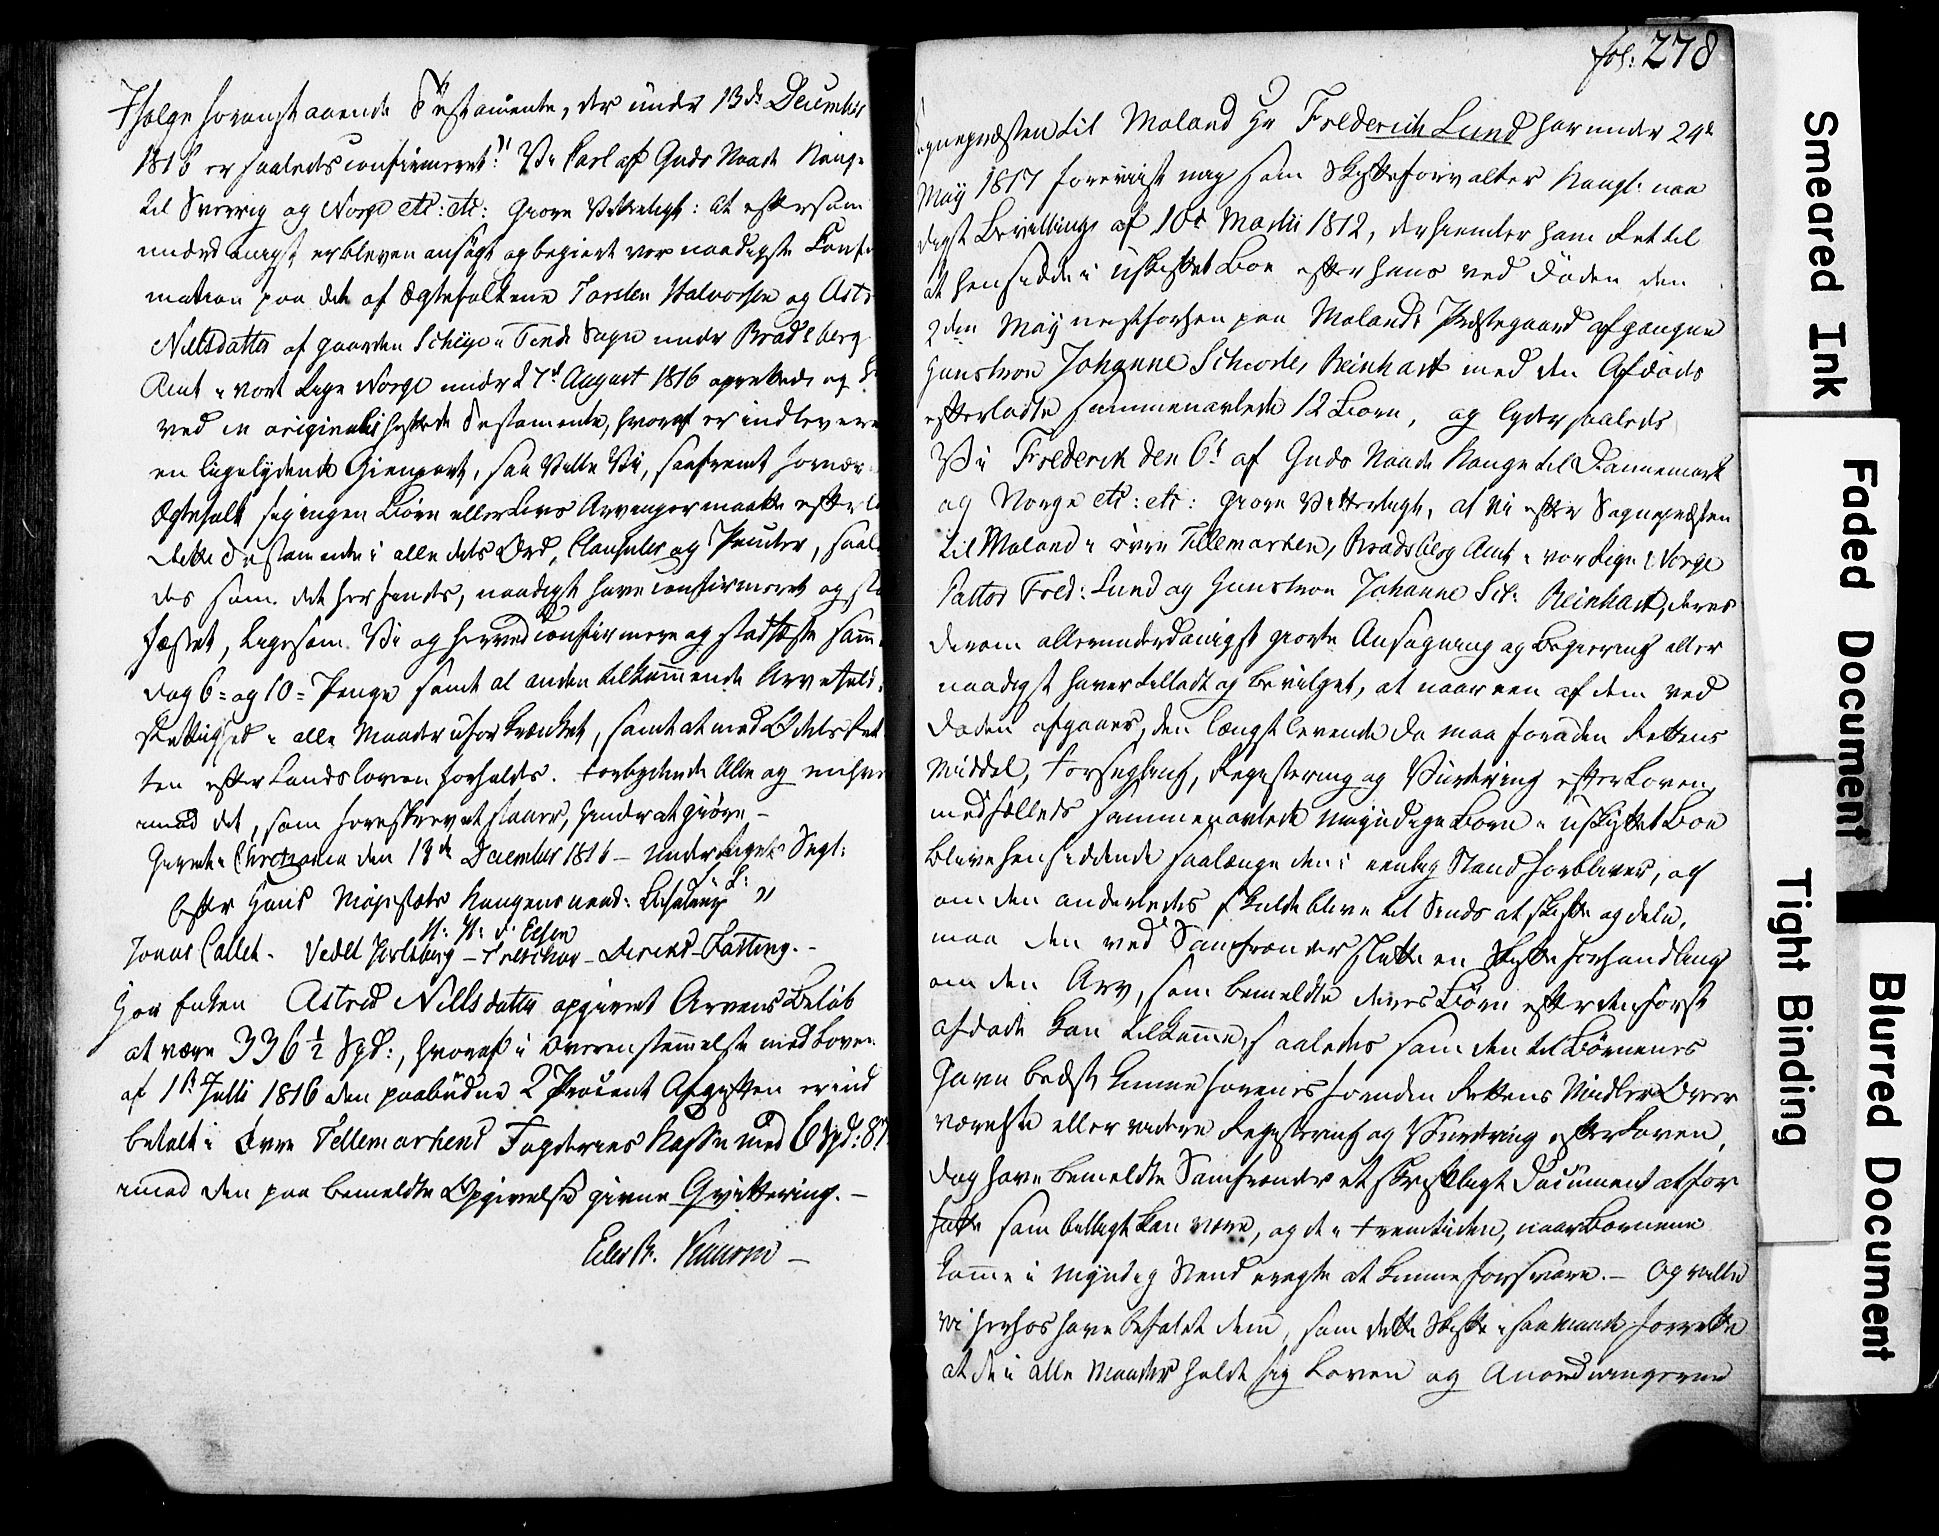 Ifølge foranstaaende Testamente, der under 13de December
1816 er saaledes confirmeret: "Vi Carl af Guds Naade Konge
til Sverrig og Norge etc: etc: Giøre Vitterligt: At eftersom
underdanigst er bleven ansøgt og begiert vor naadigste Confir
mation paa det af Ægtefolkene Torsten Halvorsen og Astr
Nielsdatter af Gaarden Scheje i Tinds Sogn under Bradsberg
Amt i vort Rige Norge under 27de August 1816 oprettede og
ved in originali heftede Testamente, hvoraf er indleveret
en ligelydende Gienpart, saa Ville Vi, saafremt fornævn
Ægtefolk sig ingen Børn eller Livs Arvinger maatte efterla
dette Testamente i alle dets Ord, Clausuler og Puncter, saale
des som det her findes, naadigst have confirmeret og stad
fæstet, ligesom Vi og herved confirmere og stadfæste samme
dog 6te og 10de Penge samt al anden tilkommende Arvefalds
Rettighed i alle Maader uforkrænket, samt at med Odels Ret
ten efter Landsloven forholdes. Forbydende Alle og enhver
imod det, som foreskrevet staaer, Hinder at giøre –
Givet i Christiania den 13de December 1816 – Under Rigets Segl:
L: S:
Efter Hans Majestæts Kongens naad: Befaling "
H: H: v: Essen
Jonas Collet. Vedel Jarlsberg – Treschow – Diriks – Fasting. –
Har Enken Astred Nielsdatter opgivet Arvens Beløb
at være 336 ½ Spd:, hvoraf i Overensstemmelse med Loven
af 1ste Julli 1816 den paabudne 2 Procent Afgiften er ind
betalt i Øvre Tellemarkens Fogderies Kasse med 6 Spd: 87
imod den paa bemeldte Opgivelse givne Qvittering. –
Eiler R.
fol: 278
Sognepræsten til Moland Hr Frederich Lund har under 24de
May 1817 foreviist mig som Skifteforvalter Kongl: naa
digst Bevilling af 10de Martii 1812, der hiemler ham Ret til
at hensidde i uskiftet Boe efter hans ved Døden den
2den May nestforhen paa Molands Præstegaard afgangne
Hustroe Johanne Reinhart med den Afdøds
efterladte sammenavlede 12 Børn, og lyder saaledes
Vi Frederik den 6te af Guds Naade Konge til Dannemark
og Norge etc: etc: Giøre Vitterligt, at Vi efter Sognepræsten
til Moland i øvre Tellemarken, Bradsberg Amt i vor Rige Norge
Pastor Fred: Lund og Hustroe Johanne Reinhart, deres
derom allerunderdanigst giorte Ansøgning og Begiering aller
naadigst haver tilladt og bevilget, at naar een af dem ved
Døden afgaaer, den længstlevende da maa foruden Rettens
Middel, Forsegling, Registering og Vurdering efter Loven,
med fælleds sammenavlede umyndige Børn i uskiftet Boe
blive hensiddende saalænge den i eenlig Stand forbliver, og
om den anderledes skulde blive til Sinds at skifte og dele,
maa den ved Samfrænder slutte en Skifteforhandling
om den Arv, som bemeldte deres Børn efter den først
afdøde kan tilkomme, saaledes som den til Børnenes
Gavn bedst kunne forenes foruden Rettens Midlers Over
værelse eller videre Registering og Vurdering efter Loven,
dog have bemeldte Samfrænder et skriftligt Document at for
fatte som billigt kan være, og de i Fremtiden, naar Børnene
komme i myndig Stand agte at kunne forsvare. – Og ville
vi herhos have befalet dem, som dette Skifte i saa maade forrette
at de i alle Maader holde sig Loven og Anordningerne
Smeared Ink
Faded Document
Tight Binding
Blurred Document